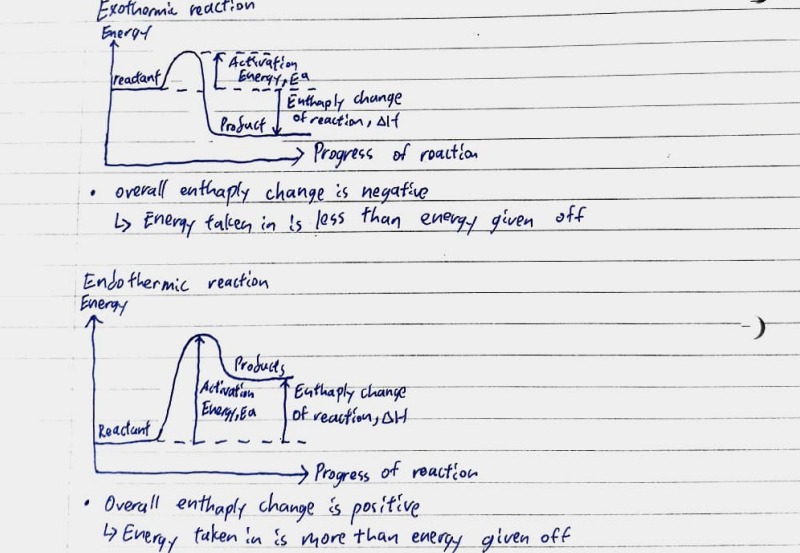 Exothermic reaction
Energy
Activation
Energy, Ea
reactant
Enthaply change
of reaction, ΔH
Product
Progress of roaction
• overall enthaply change is negative
↳ Energy taken in is less than energy given off
Endothermic reaction
Energy
Products
Activation
Energy, Ea
Enthaply change
of reaction, ΔH
Reactant
Progress of reaction
• Overall enthaply change is positive
↳ Energy taken in is more than energy given off